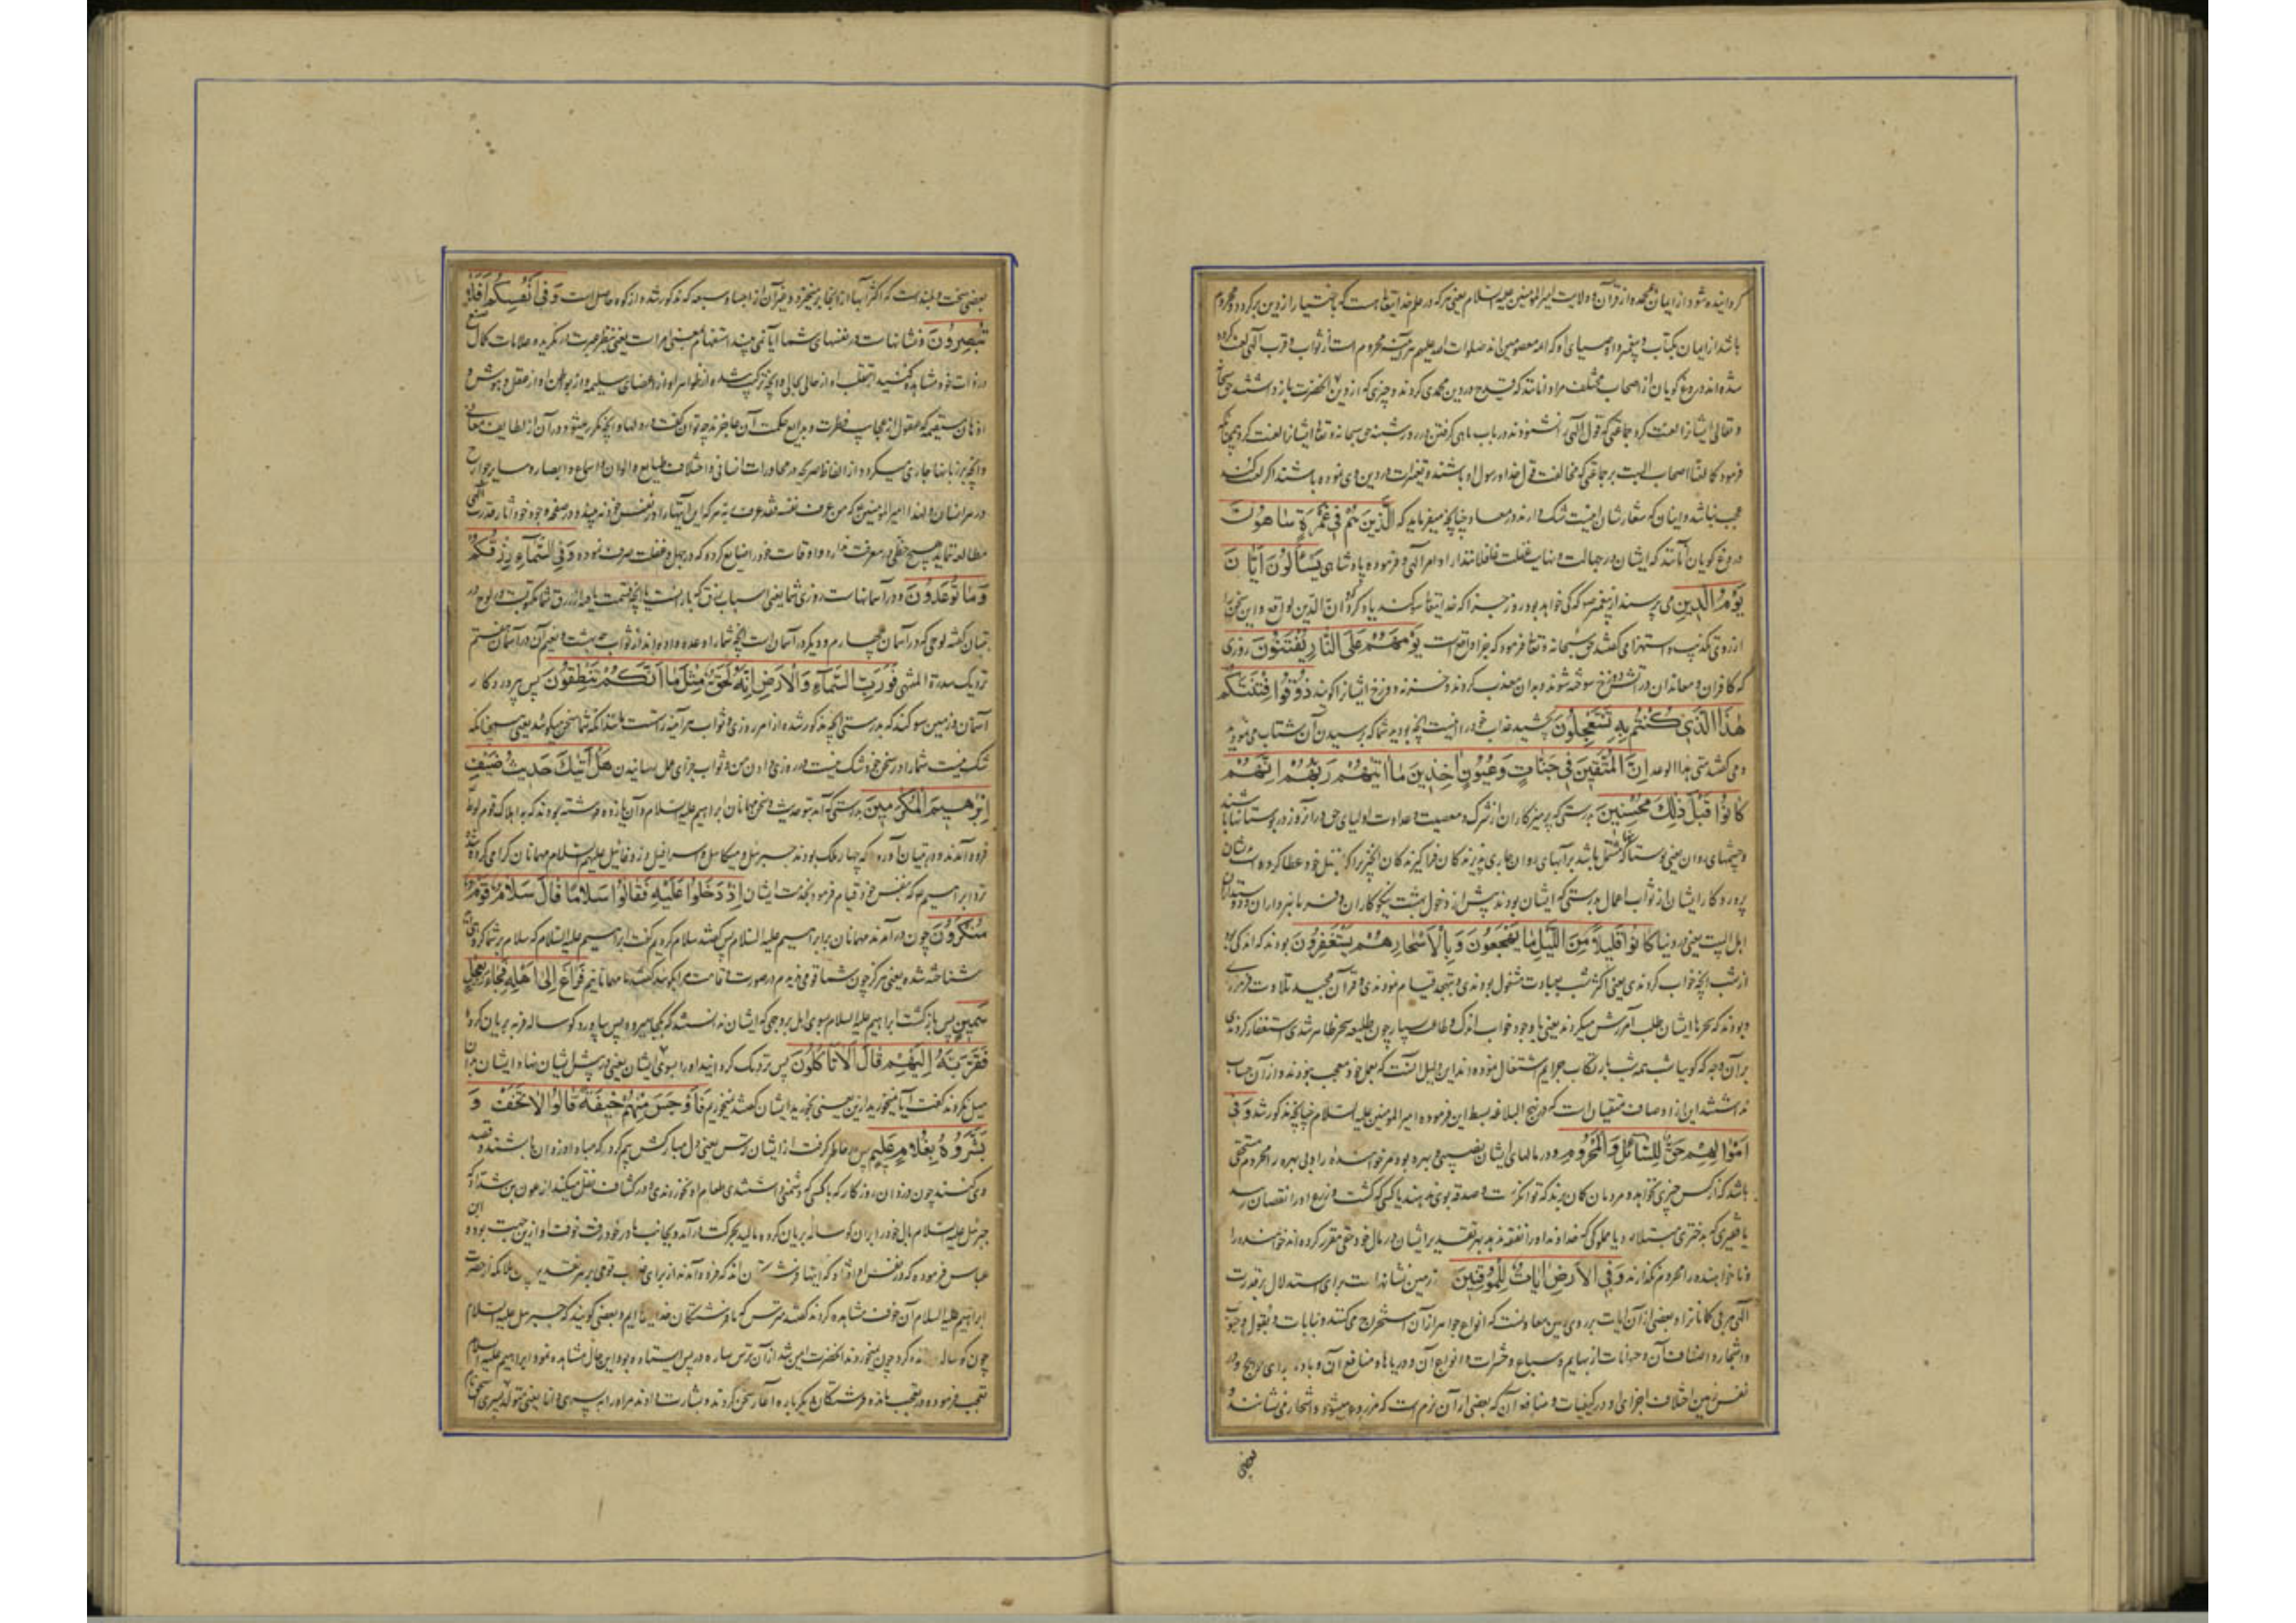 گردانیده شود از ایمان محمد و از قرآن و ولایت امیرالمؤمنین علیه السلام یعنی هر که در علم خدایتعالی است که باختیار از دین برگردد و محروم
باشد از ایمان بکتاب و پیغمبر و اوصیای او که ائمه معصومین اند صلوات الله علیهم هر آینه محروم است از ثواب و قرب آلهی لعنت کرده
شده اند دروغ گویان از اصحاب مختلف مراد آنانند که قدح در دین محمدی کردند و چیزی که از دین آنحضرت باز داشتند حق سبحانه
و تعالی ایشانرا لعنت کرد جماعتی که قول آلهی را نشنودند در باب ماهی گرفتن در روز شنبه حق سبحانه و تعالی ایشانرا لعنت کرد چنانکه
فرمود کما لعنا اصحاب السبت بر جماعتی که مخالفت قول خدا و رسول او باشند و تغیرات در دین وی نموده باشند اگر لعن کنند
عجب نباشد و اینان که شعار شان اینست شک دارند در معاد چنانچه میفرماید که الَّذِينَ هُمْ فِي غَمْرَةٍ سَاهُونَ
دروغ گویان آنانند که ایشان در جهالت و نهایت غفلت غافلانند از اوامر آلهی و فرموده پادشاهی يَسْأَلُونَ أَيَّانَ
يَوْمُ الدِّينِ می پرسند از پیغمبر ص که کی خواهد بود روز جزا که خدایتعالی سوگند یاد کرد که ان الدین لواقع و این سخن را
از روی تکذیب و استهزا می گفتند حق سبحانه و تعالی فرمود که جزا واقع است يَوْمَ هُمْ عَلَى النَّارِ يُفْتَنُونَ روزی
که کافران و معاندان در آتش دوزخ سوخته شوند و بدان معذب گردند و خزنه دوزخ ایشانرا گویند ذُوقُوا فِتْنَتَكُمْ
هَذَا الَّذِي كُنْتُمْ بِهِ تَسْتَعْجِلُونَ بچشید عذاب خود را اینست آنچه بودید شما که برسیدن آن شتاب می نمودید
و می گفتید متی هذا الوعد إِنَّ الْمُتَّقِينَ فِي جَنَّاتٍ وَعُيُونٍ آخِذِينَ مَا آتَيهُمْ رَبُّهُمْ إِنَّهُمْ
كَانُوا قَبْلَ ذَلِكَ مُحْسِنِينَ بدرستی که پرهیزکاران از شرک و معصیت و عداوت اولیای حق در آنروز در بوستانها باشند
و چشمهای روان یعنی بوستانها که مشتمل باشد بر آبهای روان جاری پذیرندکان فراگیرندکان آنچیز را که بفضل خود عطا کرده است ایشان
پروردگار ایشان از ثواب اعمال بدرستی که ایشان بودند پیش از دخول بهشت نیکوکاران و فرمانبرداران و دوستداران
اهل بیت یعنی در دنیا كَانُوا قَلِيلًا مِنَ اللَّيْلِ مَا يَهْجَعُونَ وَبِالْأَسْحَارِ هُمْ يَسْتَغْفِرُونَ بودند که اندکی بود
از شب آنچه خواب کردندی یعنی اکثر شب بعبادت مشغول بودندی و تهجد قیام نمودندی و قرآن مجید تلاوت فرمودندی
و بودند که سحرها ایشان طلب آمرزش میکردند یعنی با وجود خواب اندک و طاعت بسیار چون طلیعه سحر ظاهر شدی استغفار کردندی
بر آن وجه که گویا شب همه شب بارتکاب جرایم اشتغال نموده اند این دلیل آنست که بعمل خود معجب نبودند و از آن حساب
نداشتند این از اوصاف متقیان است که در نهج البلاغه بسط این فرموده امیرالمؤمنین علیه السلام چنانچه مذکور شد وَفِي
أَمْوَالِهِمْ حَقٌّ لِلسَّائِلِ وَالْمَحْرُومِ و در مالهای ایشان نصیبی و بهره بود مر خواهنده را و بی بهره را محروم مستحقی
باشد که از کس چیزی نخواهد و مردمان گمان برند که توانگرست و صدقه بوی ندهند یا کسی که کشت و زرع او را نقصان رسد
یا فقیری که بدختری مبتلا بود یا مملوکی که خداوند او را نفقه ندهد بهر تقدیر ایشان در مال خود حقی مقرر کرده اند خواهنده را
و ناخواهنده را محروم نگذارند وَفِي الْأَرْضِ آيَاتٌ لِلْمُوقِنِينَ زمین نشانهاست برای استدلال بر قدرت
آلهی مر بی گمانانرا و بعضی از آن آیات بر روی زمین معادنست که انواع جواهر از آن استخراج می کنند و نباتات و بقول و حبوب
و اشجار و اصناف آن و حیوانات از بهایم و سباع و حشرات و انواع آن و دریاها و منافع آن و بادها برای هر یک در
نفس زمین اختلاف اجزای او در کیفیات و منافع آن که بعضی از آن نرم است که مزروع میشود و اشجار می نشانند و
بعضی
بعضی سخت و بلند است که اکثر آبها از آنجا بر میخیزد و غیر آن از اجساد سبعه که مذکور شده از کوه حاصل است وَفِي أَنْفُسِكُمْ أَفَلَا
تُبْصِرُونَ و نشانهاست در نفسهای شما آیا نمی بیند استفهام بمعنی امر است یعنی بنظر عبرت در نگرید و علامات کمال صنع
در ذات خود مشاهده کنید از تقلب او از حالی بحالی و آنچه ترکیب شده از ظواهر او از اعضای سلیمه و از بواطن او از عقل و هوش و
اذهان مستقیمه که عقول از عجایب فطرت و بدایع حکمت آن عاجزند چه توان گفت در دلها و آنچه مکرر میشود در آن از لطایف معانی
و آنچه بر زبانها جاری میگردد از الفاظ صریحه در محاورات انسانی و اختلاف طبایع و الوان و اسماع و ابصار و سایر جوارح
در هر انسان و لهذا امیرالمؤمنین گفته که من عرف نفسه فقد عرف ربه هر که این آیتها را در نفس خود نه بیند و در صفحه وجود خود آثار قدرت آلهی
مطالعه ننماید هیچ حظی در معرفت ندارد و اوقات خود را ضایع کرده که در جهل و غفلت صرف نموده وَفِي السَّمَاءِ رِزْقُكُمْ
وَمَا تُوعَدُونَ و در آسمانهاست روزی شما یعنی اسباب رزق که بارانست یا آنچه قسمت یافته از رزق شما مکتوبست در لوح و در
تبیان گفته لوحی که در آسمان چهارم و دیگر در آسمان است آنچه شما را وعده داده اند از ثواب چه بهشت و نعیم آن در آسمان هفتم
نزدیک سدرة المنتهی فَوَرَبِّ السَّمَاءِ وَالْأَرْضِ إِنَّهُ لَحَقٌّ مِثْلَ مَا أَنَّكُمْ تَنْطِقُونَ پس بپروردگار
آسمان و زمین سوگند که بدرستی آنچه مذکور شده از امر روزی و ثواب هر آینه راست باشد مانند آنکه شما سخن میگوئید یعنی همچنانکه
شک نیست شما را در سخن خود شک نیست در روزی دادن من و ثواب جزای عمل رسانیدن هَلْ أَتَيكَ حَدِيثُ ضَيْفِ
إِبْرَاهِيمَ الْمُكْرَمِينَ بدرستی که آمد بتو حدیث و سخن مهمانان ابراهیم علیه السلام و آن یازده فرشته بودند که به اهلاک قوم لوط
فرود آمدند و در تبیان آورده که چهار ملک بودند جبرئیل و میکائیل و اسرافیل و زوقائیل علیهم السلام مهمانان گرامی کرده شده
نزد ابراهیم ع که بنفس خود قیام فرمود بخدمت ایشان إِذْ دَخَلُوا عَلَيْهِ فَقَالُوا سَلَامًا قَالَ سَلَامٌ قَوْمٌ
مُنْكَرُونَ چون در آمدند مهمانان بر ابراهیم علیه السلام پس گفتند سلام کردیم گفت ابراهیم علیه السلام که سلام بر شما گروهی
شناخته نشده یعنی هرگز چون شما قومی ندیدم در صورت و قامت مرا بگوئید گفتند ما مهمانانیم فَرَاغَ إِلَى أَهْلِهِ فَجَاءَ بِعِجْلٍ
سَمِينٍ پس بازگشت ابراهیم علیه السلام بسوی اهل بروجهی که ایشان ندانستند که بکجا میرود پس بیاورد گوساله فربه بریان کرده
فَقَرَّبَهُ إِلَيْهِمْ قَالَ أَلَا تَأْكُلُونَ پس نزدیک گردانید او را بسوی ایشان یعنی در پیش ایشان نهاد ایشان بدان
میل نکردند گفت آیا نمیخورید از این یعنی بخورید ایشان گفتند نمیخوریم فَأَوْجَسَ مِنْهُمْ خِيفَةً قَالُوا لَا تَخَفْ وَ
بَشَّرُوهُ بِغُلَامٍ عَلِيمٍ پس بخاطر گرفت از ایشان ترس یعنی دل مبارکش بیم کرد که مبادا دزدان باشند و قصد
وی کنند چون در آن روزگار که با کسی که دشمنی داشتندی طعام او نخوردندی و در کشاف نقل میکند از عون بن شداد که
جبرئیل علیه السلام بال خود را بر آن گوساله بریان کرده مالید بحرکت در آمد و بجانب مادر خود رفت خوف او از این جهت بود و ابن
عباس فرموده که در نفس او افتاد که اینها فرشتگان اند که فرود آمدند از برای عذاب قومی بهر تقدیر ملائکه از حضرت
ابراهیم علیه السلام آن خوف مشاهده کردند گفتند مترس که ما فرشتگان خدایتعالی ایم و بعضی گویند که جبرئیل علیه السلام
چون گوساله زنده کرد چون نمیخوردند آنحضرت ایمن شد از آن ترس ساره در پس ایستاده بود این حال مشاهده نمود ابراهیم علیه السلام
تعجب فرموده در تعجب مانده فرشتگان دیگر باره آغاز سخن کردند و بشارت دادند مر او را به پسری دانا یعنی متولد پسری اسحق نام